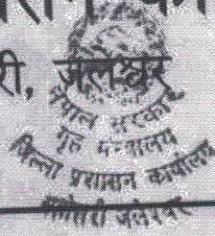 री, जलेश्वर
नेपाल सरकार
गृह मन्त्रालय
जिल्ला प्रशासन कार्यालय
महोत्तरी जलेश्वर